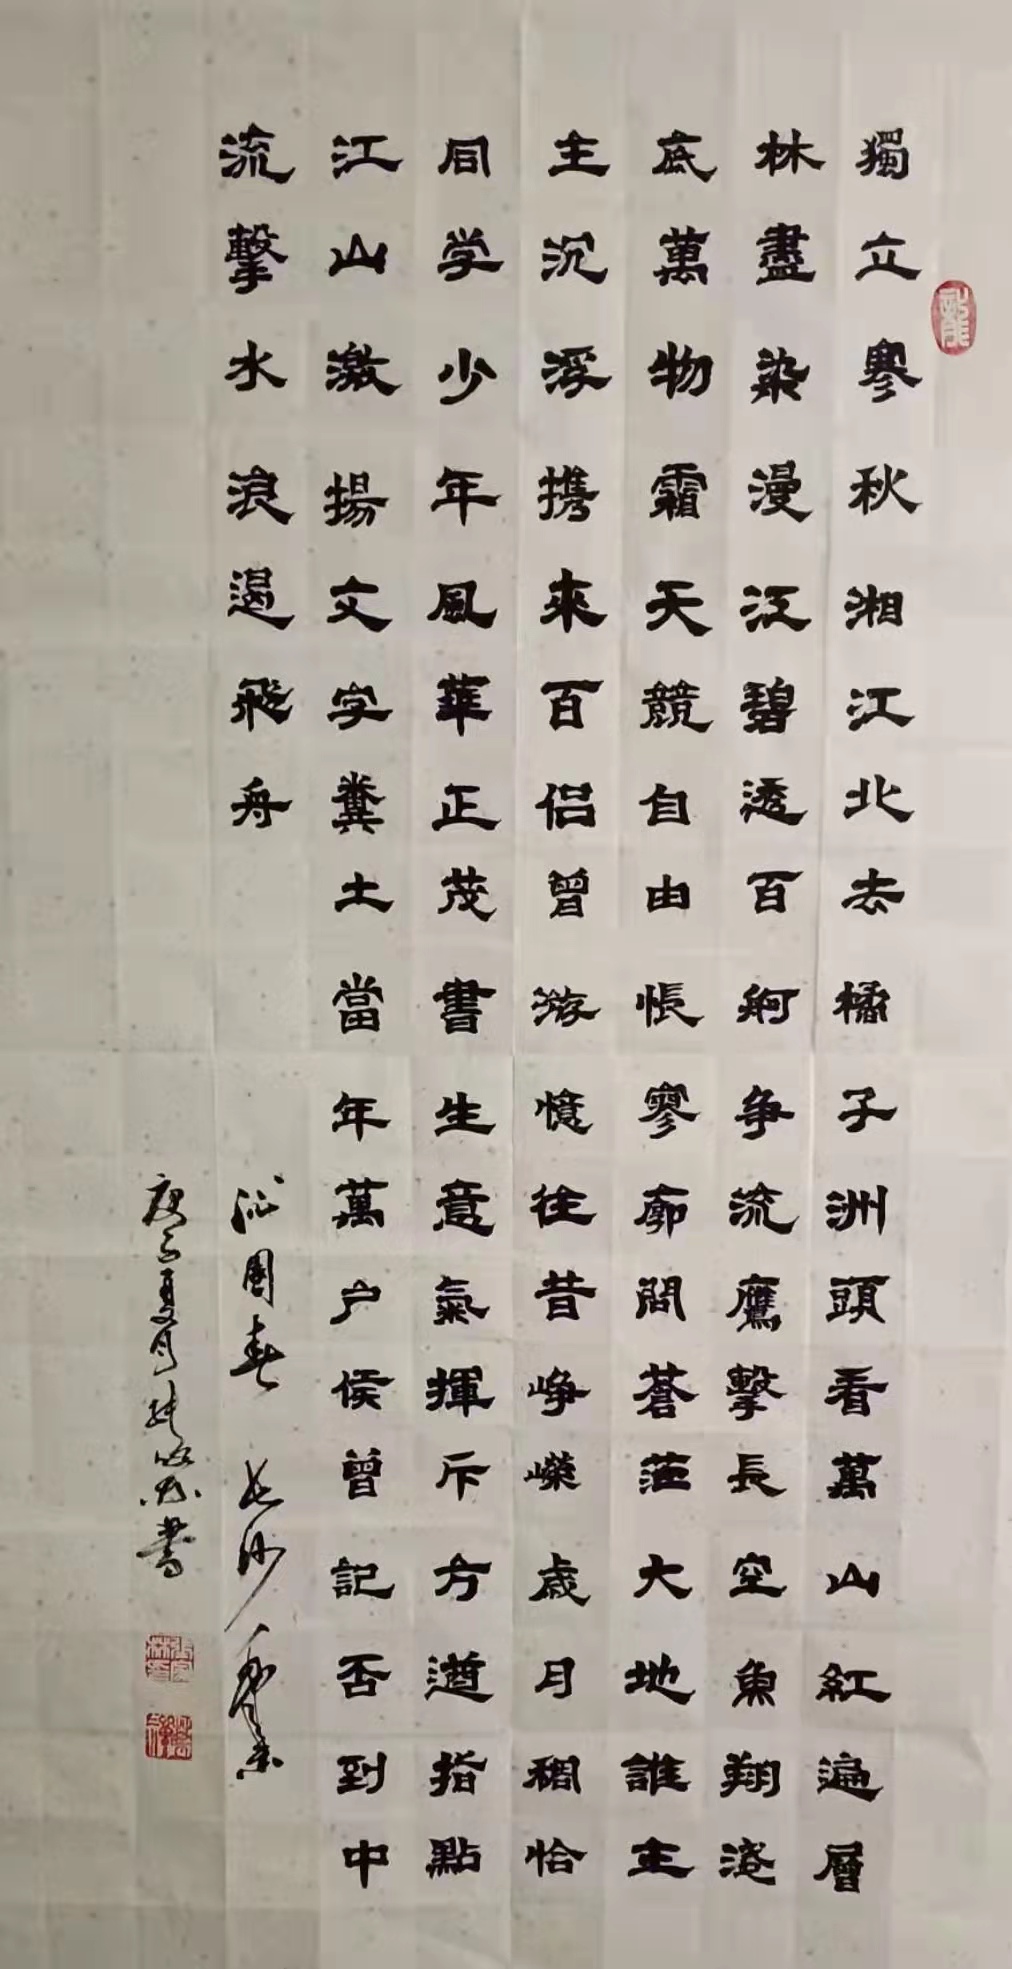 獨立寥秋湘江北去橘子洲頭看萬山紅遍層
林盡染漫江碧透百舸争流鷹擊長空魚翔淺
底萬物霜天競自由悵寥廓問蒼茫大地誰主
主沉浮攜來百侣曾游憶往昔崢嶸歲月稠恰
同学少年風華正茂書生意氣揮斥方遒指點
江山激揚文字糞土當年萬户侯曾記否到中
流擊水浪遏飛舟
沁園春 長沙
庚子夏月 書
龍